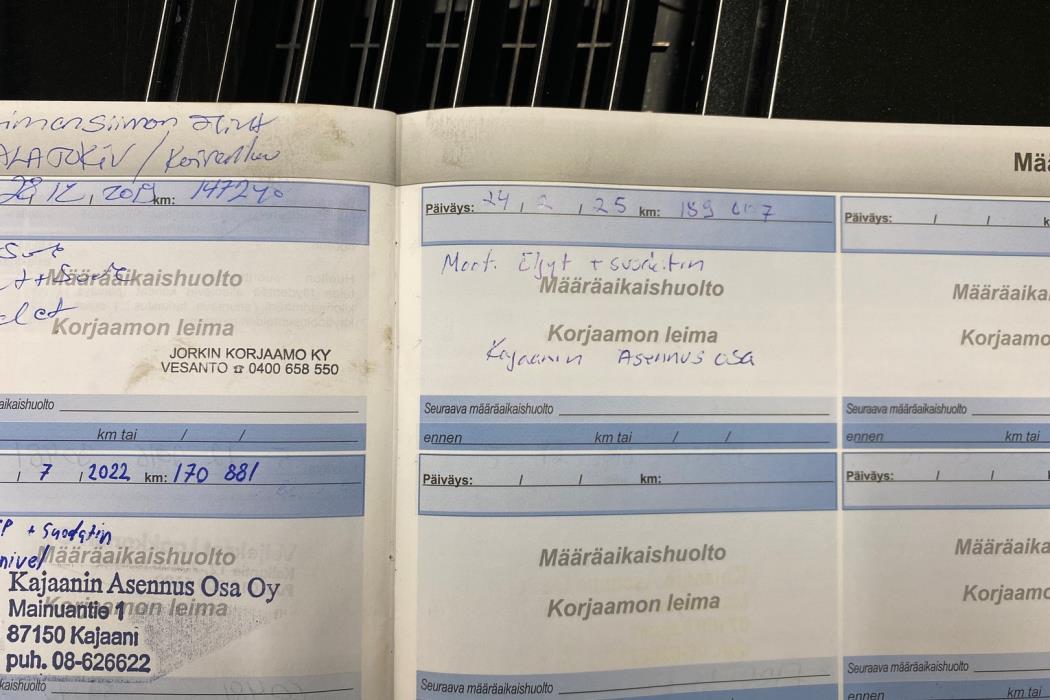 Mää
ALAJOKIV / Koivu
28, 12, 2019 km: 147240
Määräaikaishuolto
Korjaamon leima
JORKIN KORJAAMO KY
VESANTO ☎ 0400 658 550
aikaishuolto
km tai / /
/ 7 / 2022 km: 170 881
+ Suodatin
nivel
Määräaikaishuolto
Kajaanin Asennus Osa Oy
Korjaamon leima
Mainuantie 1
87150 Kajaani
puh. 08-626622
kaishuolto
Päiväys: 24 / 2 / 25 km: 189
Moot. Öljyt + suodatin
Määräaikaishuolto
Korjaamon leima
Kajaanin Asennus osa
Seuraava määräaikaishuolto
ennen km tai / /
Päiväys: / / km:
Määräaikaishuolto
Korjaamon leima
Seuraava määräaikaishuolto
Päiväys: / / k
Määräaika
Korjaamo
Seuraava määräaikaishuolto
ennen km tai
Päiväys: / /
Määräaika
Korjaamo
Seuraava määräaikaishuolto
ennen km tai